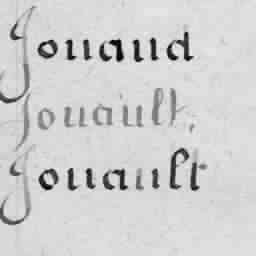 Jouaud
Jouault,
Jouault